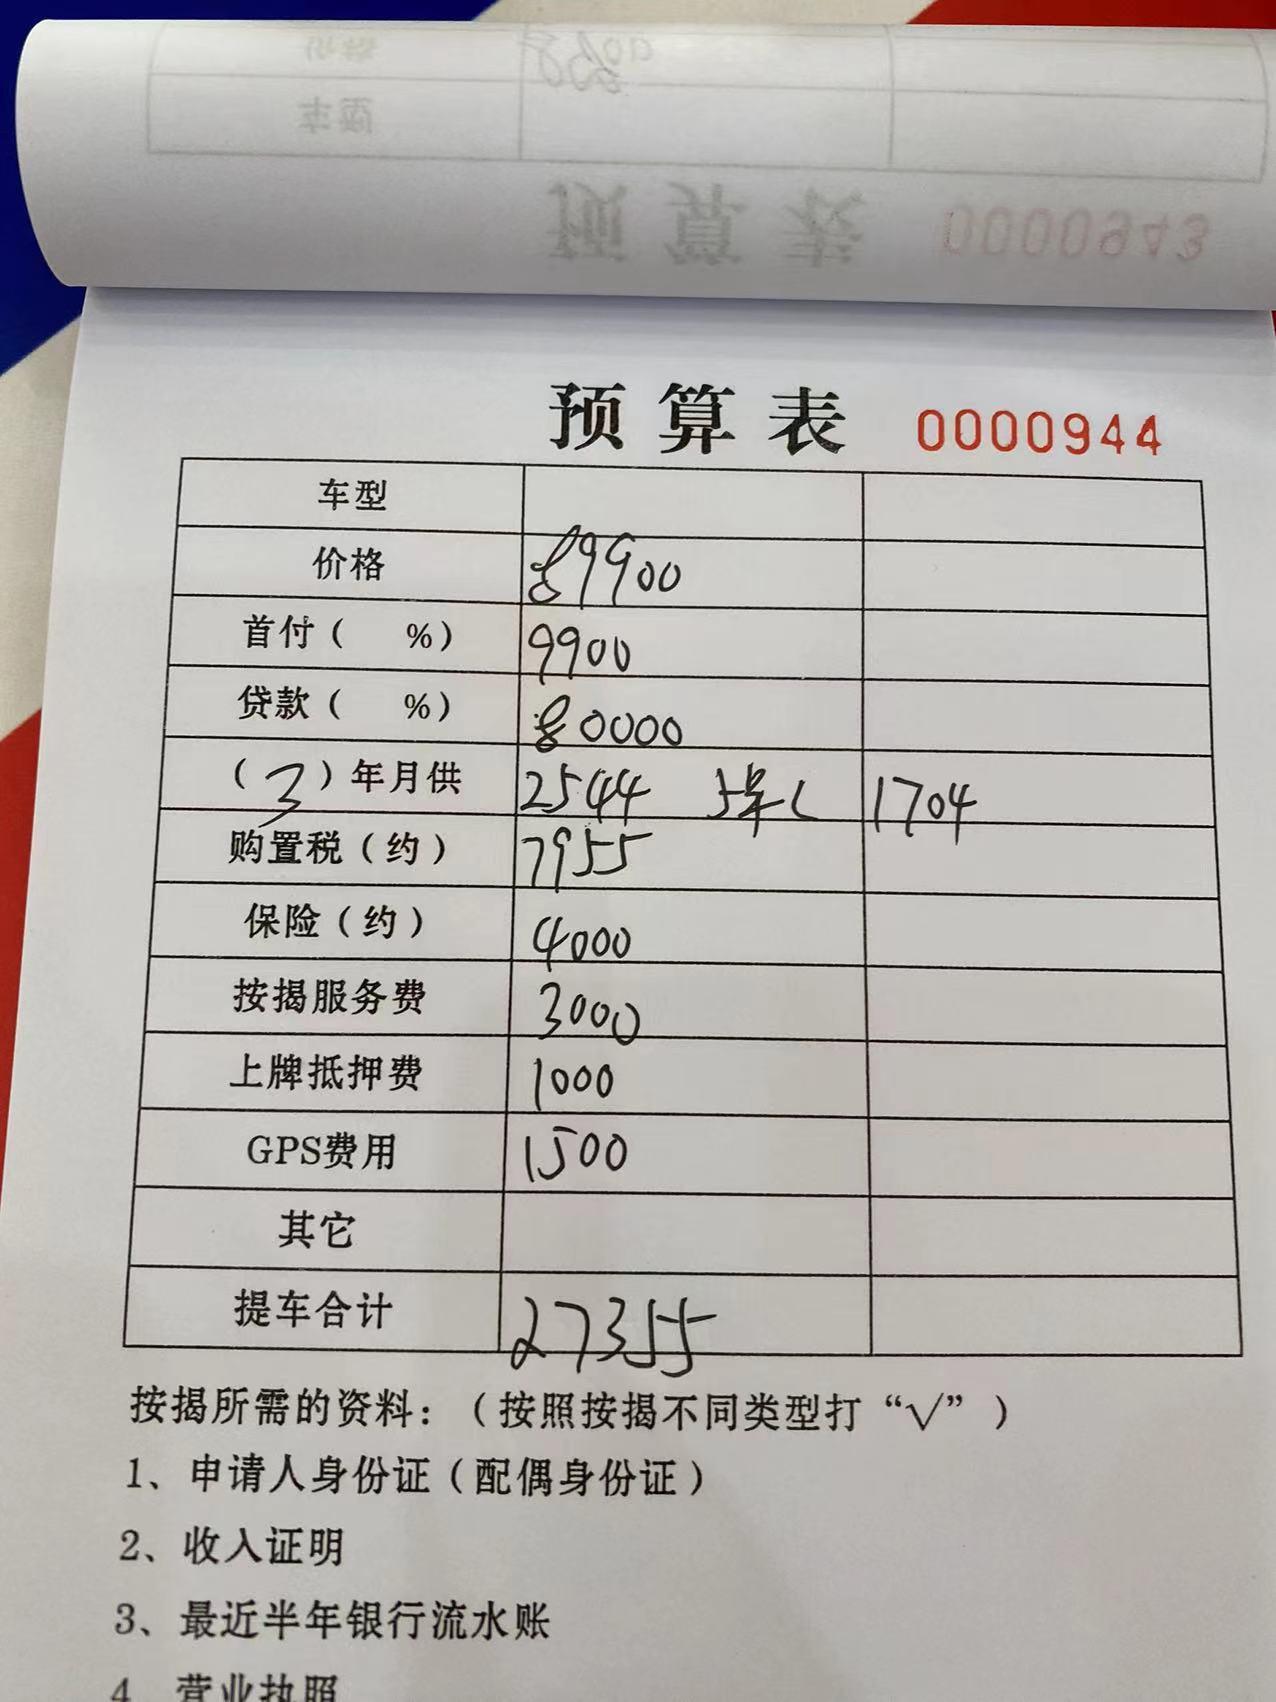 预算表 0000943
预算表 0000944
车型
价格 89900
首付( %) 9900
贷款( %) 80000
(3)年月供 2544 5年 1704
购置税(约) 7955
保险(约) 4000
按揭服务费 3000
上牌抵押费 1000
GPS费用 1500
其它
提车合计 27355
按揭所需的资料:(按照按揭不同类型打“√”)
1、申请人身份证(配偶身份证)
2、收入证明
3、最近半年银行流水账
4、营业执照